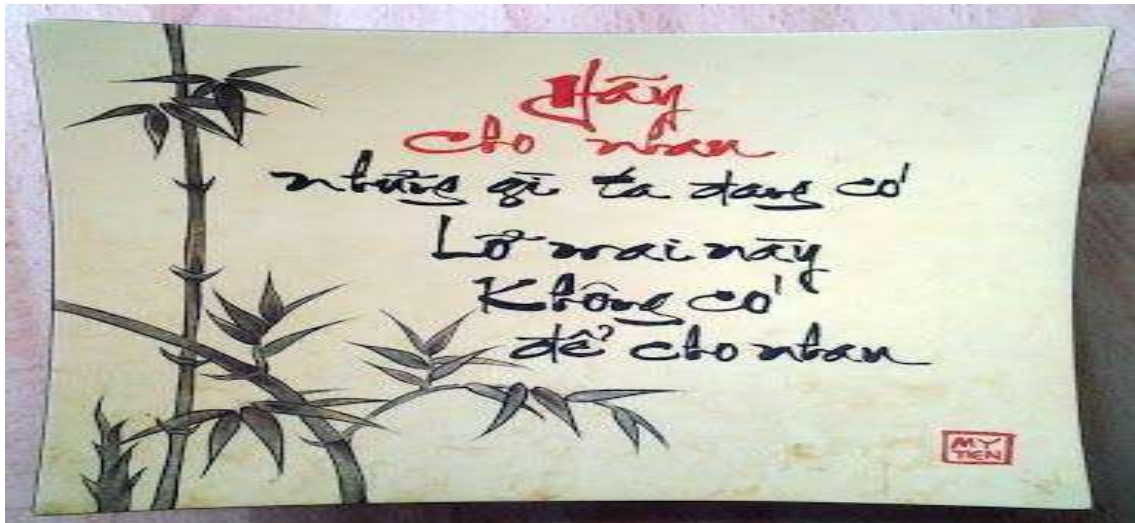 Hãy
cho nhau
những gì ta đang có
Lỡ mai nầy
Không có
để cho nhau
MY
TIEN